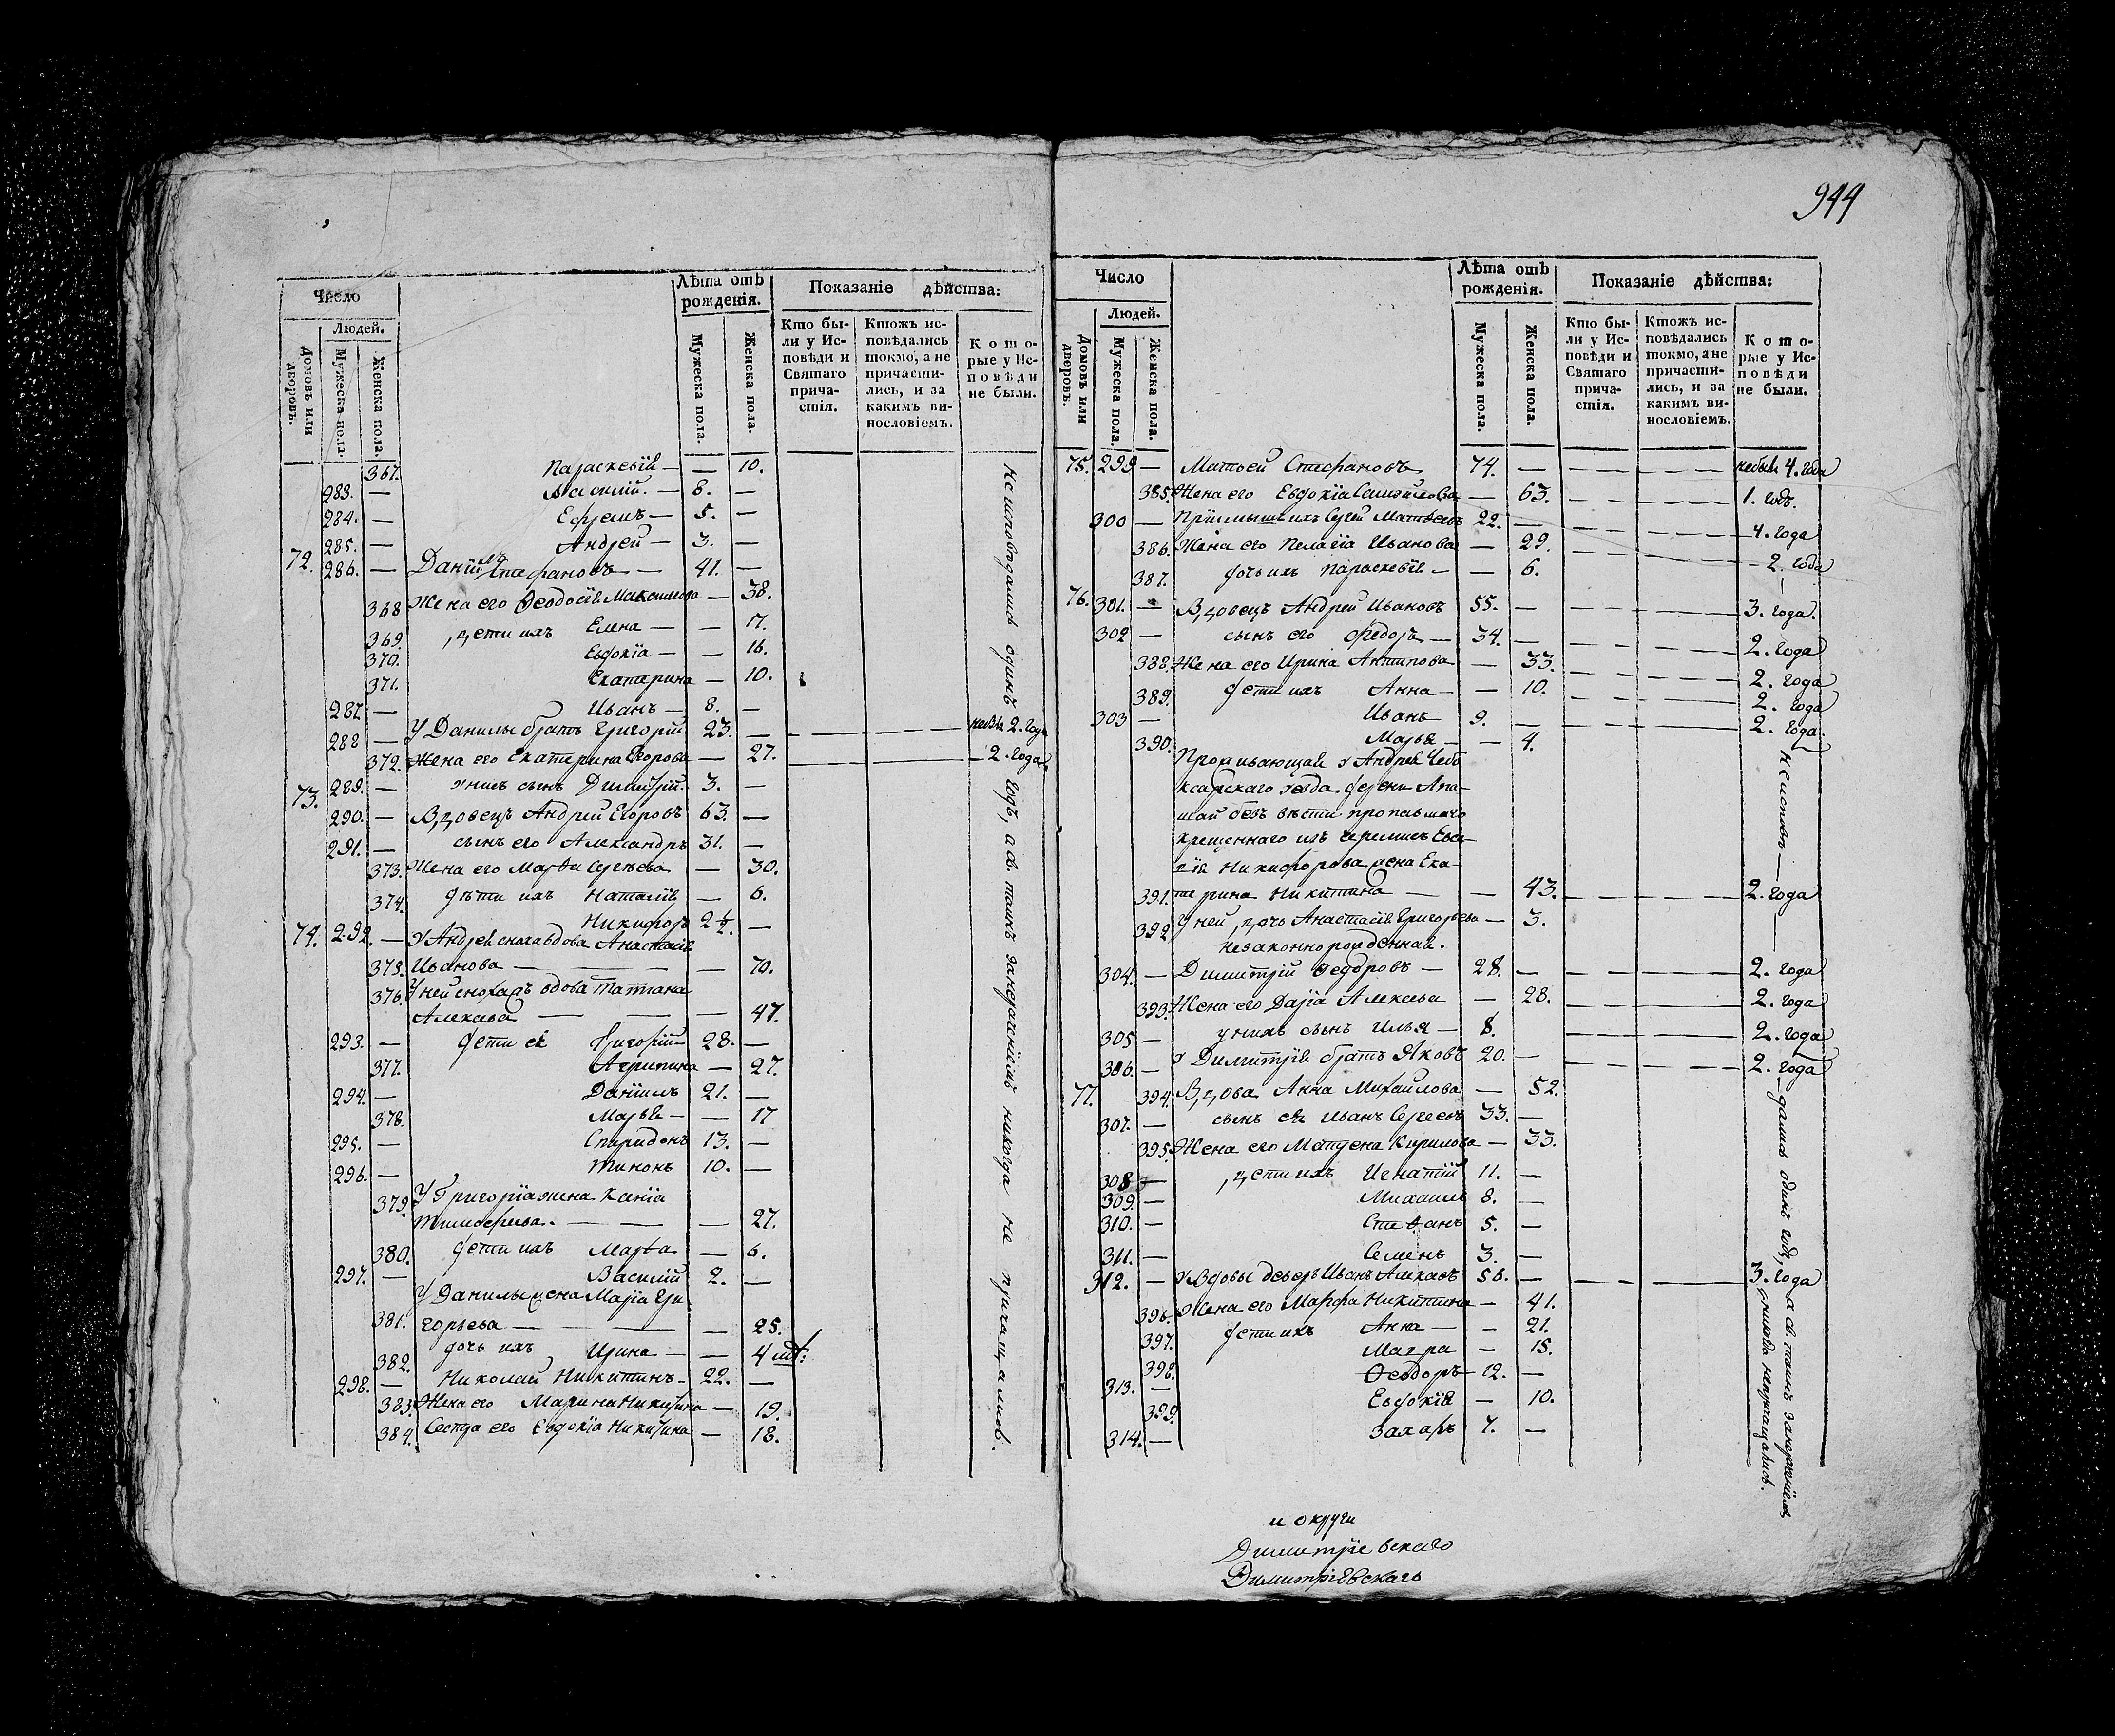 944
Число
Лѣта отъ рожденія.
Показаніе дѣйства:
Людей.
Домовъ или дворовъ.
Мужеска пола.
Женска пола.
Мужеска пола.
Женска пола.
Кто бы-
ли у Ис-
повѣди и
Святаго
прича-
стія.
Ктожъ ис-
повѣдались
токмо, а не
причасти-
лись, и за
какимъ ви-
нословіемъ.
Кото-
рые у Ис-
повѣди
не были.
367. Параскевія — — 10.
283. — Василій. — 8. —
284. — Ефремъ — 5. —
285. — Андрей — 3. —
72. 286. — Даніилъ Стефановъ — 41. —
368 Жена его Ѳеодосія Максимова — 38.
369. дети ихъ Елена — — 17.
370. Евдокіа — — 16.
371. Екатерина — 10.
287. — Иванъ — 8. —
288 — У Данилы братъ Григорій 23. — небы 2. года
372. Жена его Екатерина Егорова — 27. 2. года
289. — у нихъ сынъ Димитрій. 3. —
73. 290. — Вдовецъ Андрей Егоровъ 63. —
291. — сынъ его Александръ 31. —
373. Жена его Марѳа Сергѣева — 30.
374. дѣти ихъ Наталія — 6.
74. 292. — Никифоръ 2½. —
У Андрея сноха вдова Анастасія
375. Иванова — — — — 70.
376. У ней снохаъ вдова Татіана
Алексева — — — 47.
293. — дети ея Григорій — 28. —
377. Агрипина — 27.
294. — Даніилъ 21. —
378. Марья — — 17
295. — Спиридонъ 13. —
296. — Тихонъ 10. —
379. У Григоріа жена Ксеніа
Тимофеева. — — — 27.
380. дети ихъ Марѳа — 6.
297. — Василій 2. —
У Данилы жена Маріа Гри
381. горьева — — — 25.
382. дочь ихъ Ирина — — 4
298. — Николай Никитинъ — 22. —
383. Жена его Марина Никитина — 19.
384. Сестра его Евдокіа Никитина — 18.
не исповѣдались одинъ годъ, а св. таинъ никогда не причащались.
Число
Лѣта отъ рожденія.
Показаніе дѣйства:
Людей.
Домовъ или дворовъ.
Мужеска пола.
Женска пола.
Мужеска пола.
Женска пола.
Кто бы-
ли у Ис-
повѣди и
Святаго
прича-
стія.
Ктожъ ис-
повѣдались
токмо, а не
причасти-
лись, и за
какимъ ви-
нословіемъ.
Кото-
рые у Ис-
повѣди
не были.
75. 299 — Матѳей Стефановъ 74. — — — — — небы 4. года
385. Жена его Евдокіа Самойлова — 63. 1. годъ.
300 — Пріимышъ ихъ Сергей Матвеевъ 22. — 4. года
386. Жена его Пелагіа Иванова — 29. 2. года
387. дочь ихъ Параскевія — — 6.
76. 301. — Вдовецъ Андрей Ивановъ 55. — 3. года.
302 — сынъ его Ѳедоръ — 34. — 2. года
388. Жена его Ирина Антипова — 33. 2. года
389. дети ихъ Анна — — 10. 2. года
303 — Иванъ 9. — 2. года
390. Марья — — 4.
Проживающая у Андрея Чебо
ксарскаго уезда
безъ вѣсти пропавшаго
крещеннаго изъ черемисъ
Никифорова жена Ека-
391. терина Никитина — — 43. 2. года
392 У ней дочь Анастасія Григорьева — 3.
незаконнорожденная.
304. — Димитрій Ѳедоровъ — 28. — 2. года
393. Жена его Даріа Алексеева — 28. 2. года
305 — у нихъ сынъ Илья — 8. 2. года
306. — У Димитрія братъ Яковъ 20. — 2. года
77. 394. Вдова Анна Михаилова — 52.
307. — сынъ ея Иванъ Сергеевъ 33. —
395. Жена его Матрена Кирилова — 33.
308 — дети ихъ Игнатій 11. —
309. — Михаилъ 8. —
310. — Стефанъ 5. —
311. — Семенъ 3. —
312. — У вдовы деверь Иванъ Алексеевъ 56. — 3. года
396. Жена его Марфа Никитина — 41.
397. дети ихъ Анна — — 21.
398. — 15.
313. — Ѳеодоръ — 12. —
399. Евдокія — 10.
314. — Захаръ 7. —
не исповѣ— дались одинъ годъ, а св. таинъ никогда не причащались.
и округи
Димитріевскаго
Димитріевскаго